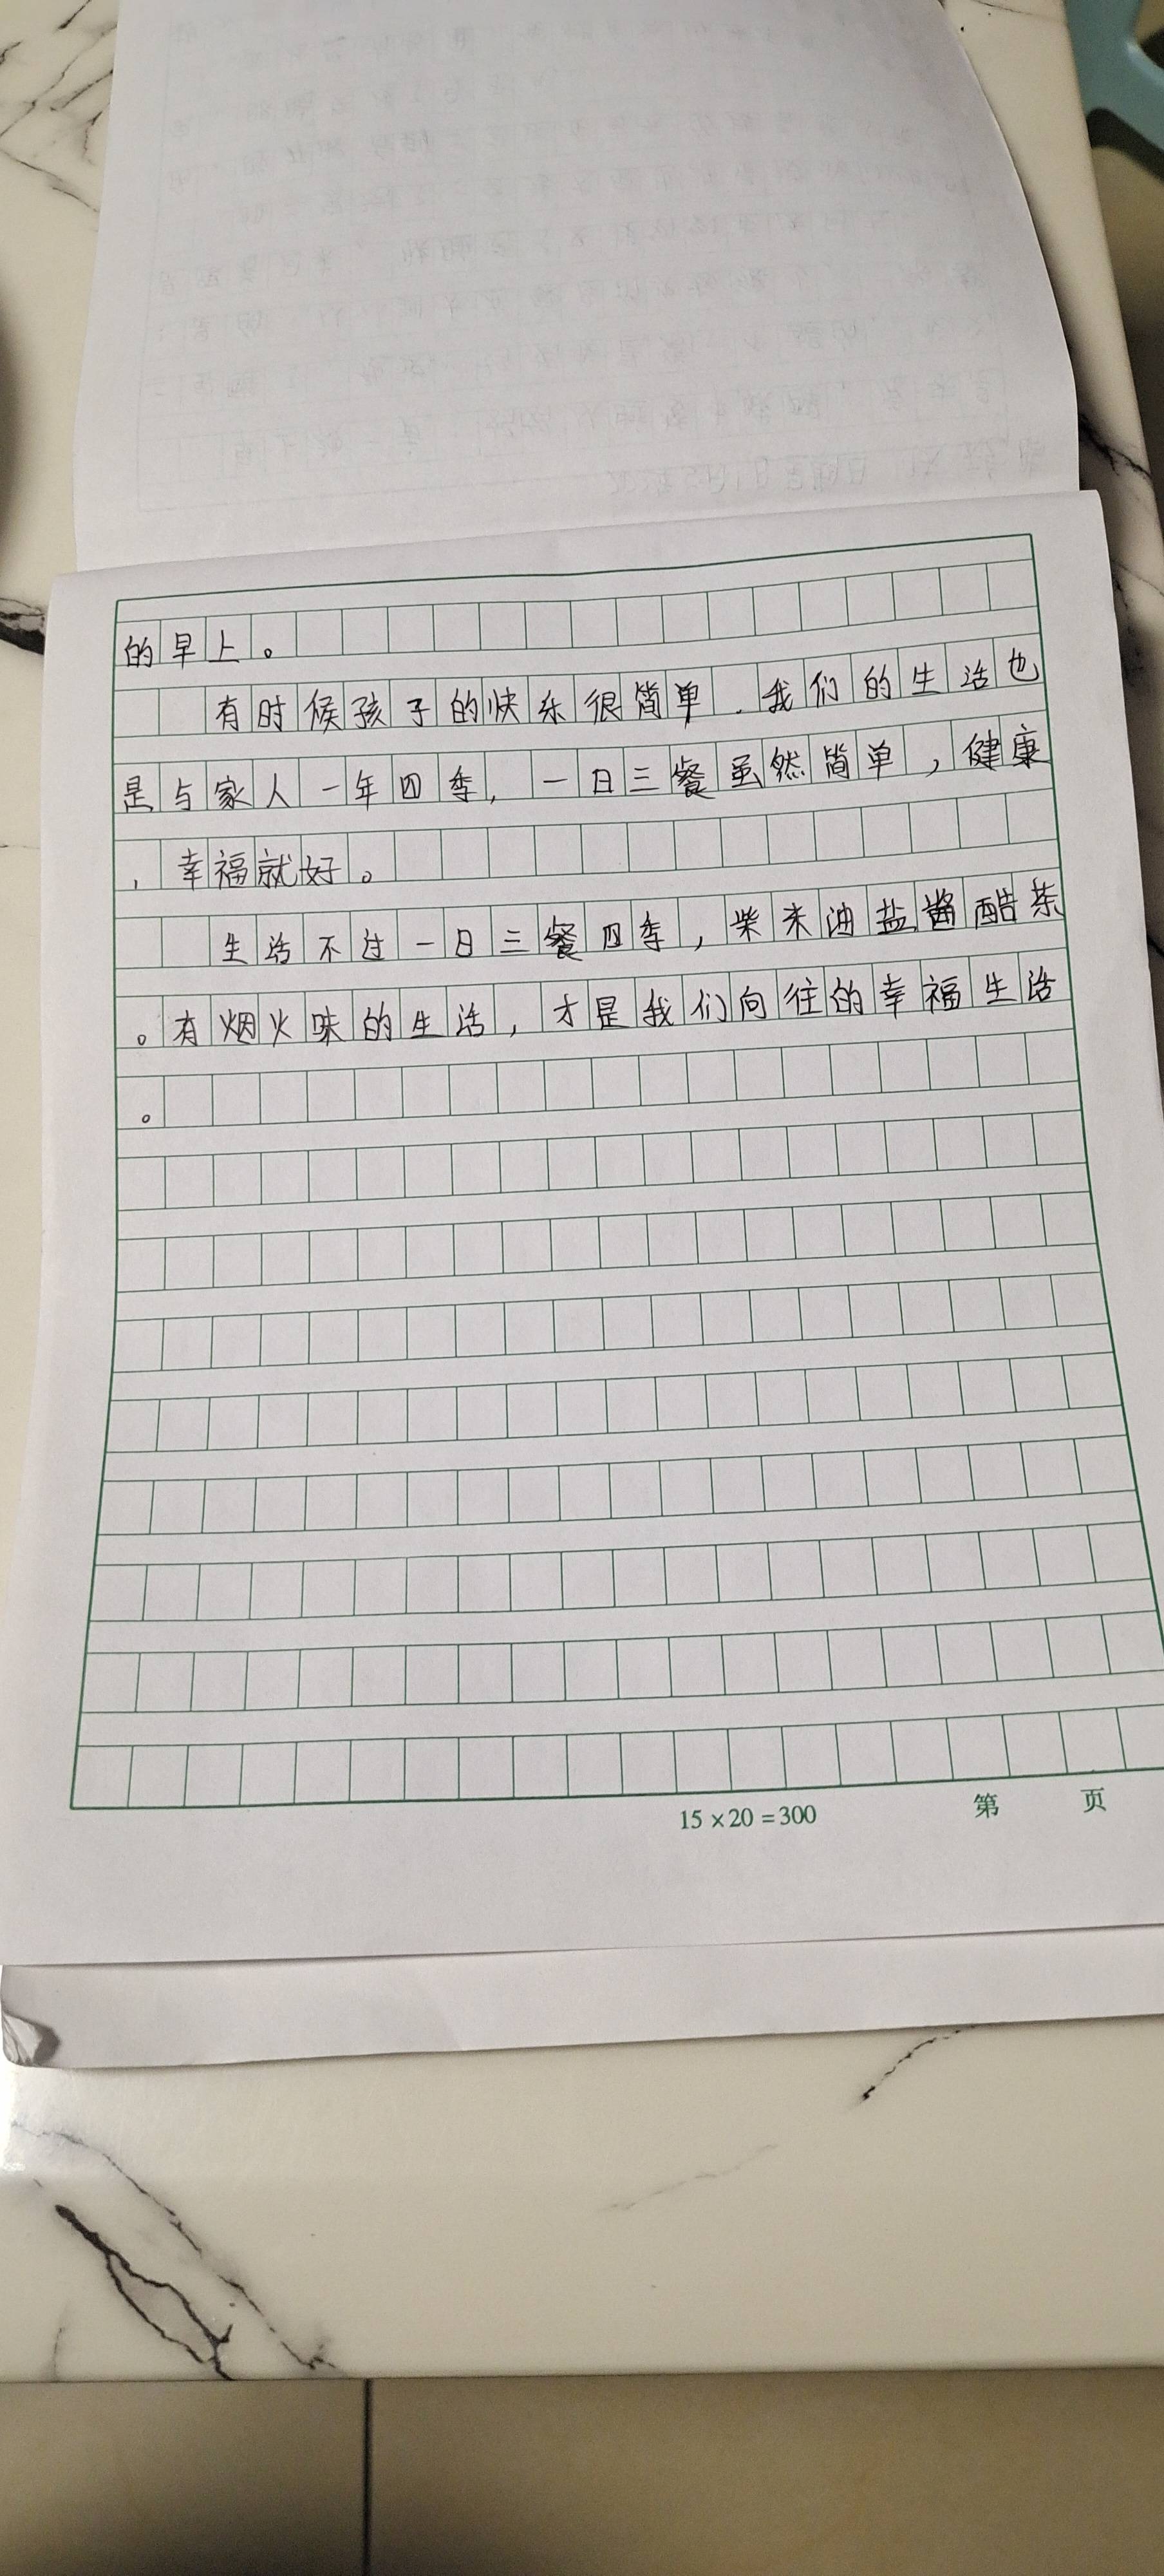 的早上。
有时候孩子的快乐很简单.我们的生活也
是与家人一年四季,一日三餐虽然简单,健康
,幸福就好。
生活不过一日三餐四季,柴米油盐酱醋茶
。有烟火味的生活,才是我们向往的幸福生活
。
15×20=300 第 页